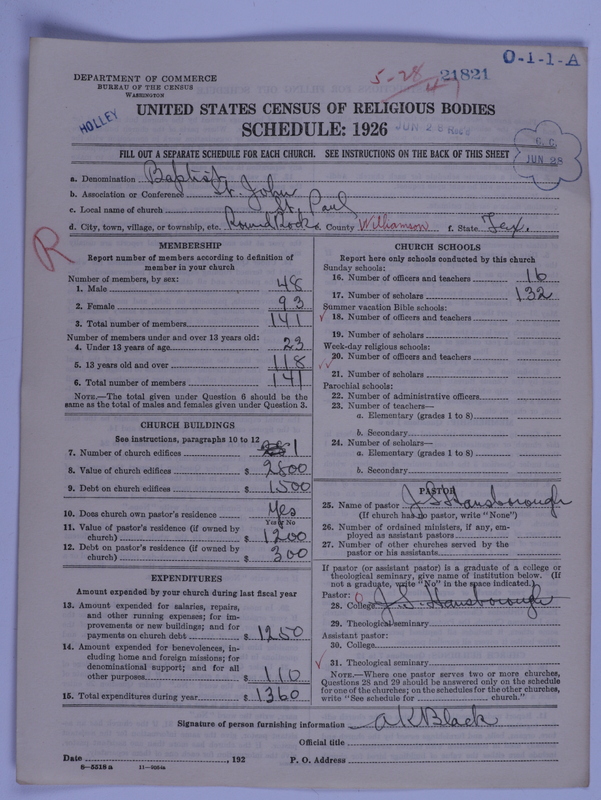 O-1-1-A
DEPARTMENT OF COMMERCE
BUREAU OF THE CENSUS
WASHINGTON
5-28
21821
HOLLEY
UNITED STATES CENSUS OF RELIGIOUS BODIES
SCHEDULE: 1926
JUN 26 Rec'd
FILL OUT A SEPARATE SCHEDULE FOR EACH CHURCH. SEE INSTRUCTIONS ON THE BACK OF THIS SHEET
JUN 28
a. Denomination Baptist
b. Association or Conference St. John
c. Local name of church St. Paul
d. City, town, village, or township, etc. Round Rock e. County Williamson f. State Tex.
R
MEMBERSHIP
Report number of members according to definition of
member in your church
Number of members, by sex:
1. Male 48
2. Female 93
3. Total number of members 141
Number of members under and over 13 years old:
4. Under 13 years of age 23
5. 13 years old and over 118
6. Total number of members 141
NOTE.—The total given under Question 6 should be the
same as the total of males and females given under Question 3.
CHURCH BUILDINGS
See instructions, paragraphs 10 to 12
7. Number of church edifices 1
8. Value of church edifices $ 2800
9. Debt on church edifices $ 1500
10. Does church own pastor's residence Yes
Yes or No
11. Value of pastor's residence (if owned by
church) $ 1200
12. Debt on pastor's residence (if owned by
church) $ 300
EXPENDITURES
Amount expended by your church during last fiscal year
13. Amount expended for salaries, repairs,
and other running expenses; for im-
provements or new buildings; and for
payments on church debt $ 1250
14. Amount expended for benevolences, in-
cluding home and foreign missions; for
denominational support; and for all
other purposes $ 110
15. Total expenditures during year $ 1360
CHURCH SCHOOLS
Report here only schools conducted by this church
Sunday schools:
16. Number of officers and teachers 16
17. Number of scholars 132
Summer vacation Bible schools:
18. Number of officers and teachers
19. Number of scholars
Week-day religious schools:
20. Number of officers and teachers
21. Number of scholars
Parochial schools:
22. Number of administrative officers
23. Number of teachers—
a. Elementary (grades 1 to 8)
b. Secondary
24. Number of scholars—
a. Elementary (grades 1 to 8)
b. Secondary
PASTOR
25. Name of pastor J. S. Hansborough
(If church has no pastor, write "None")
26. Number of ordained ministers, if any, em-
ployed as assistant pastors
27. Number of other churches served by the
pastor or his assistants
If pastor (or assistant pastor) is a graduate of a college or
theological seminary, give name of institution below. (If
not a graduate, write "No" in the space indicated.)
Pastor:
28. College J. S. Hansborough
29. Theological seminary
Assistant pastor:
30. College
31. Theological seminary
NOTE.—Where one pastor serves two or more churches,
Questions 28 and 29 should be answered only on the schedule
for one of the churches; on the schedules for the other churches,
write "See schedule for church."
Signature of person furnishing information A K Black
Official title
Date , 192 P. O. Address
6-5518 a 11-9054a